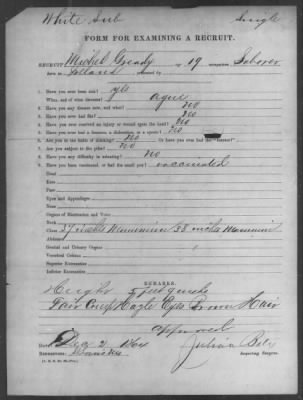 White Sub Single
FORM FOR EXAMINING A RECRUIT.
RECRUIT Michel Gready 19 occupation Laborer
born in
1. Have you ever been sick? yes
When, and of what disease? ague
2. Have you any disease now, and what? no
3. Have you ever had fits? no
4. Have you ever received an injury or wound upon the head? no
5. Have you ever had a fracture, a dislocation, or a sprain? no
6. Are you in the habit of drinking? no Or have you ever had the "horrors?"
7. Are you subject to the piles? no
8. Have you any difficulty in urinating? no
9. Have you been vaccinated, or had the small pox? vaccinated
Head,
Ears,
Face,
Eyes and Appendages,
Nose,
Organs of Mastication and Voice
Neck,
Chest, 37 inches 33 inches
Abdomen,
Genital and Urinary Organs
Vertebral Column
Superior Extremities
Inferior Extremities
REMARKS.
Height 5 feet inches
Fair Comp Hazle Eyes Brown Hair
approved
Dec 2 1864
RENDEZVOUS:
Examining Surgeon.